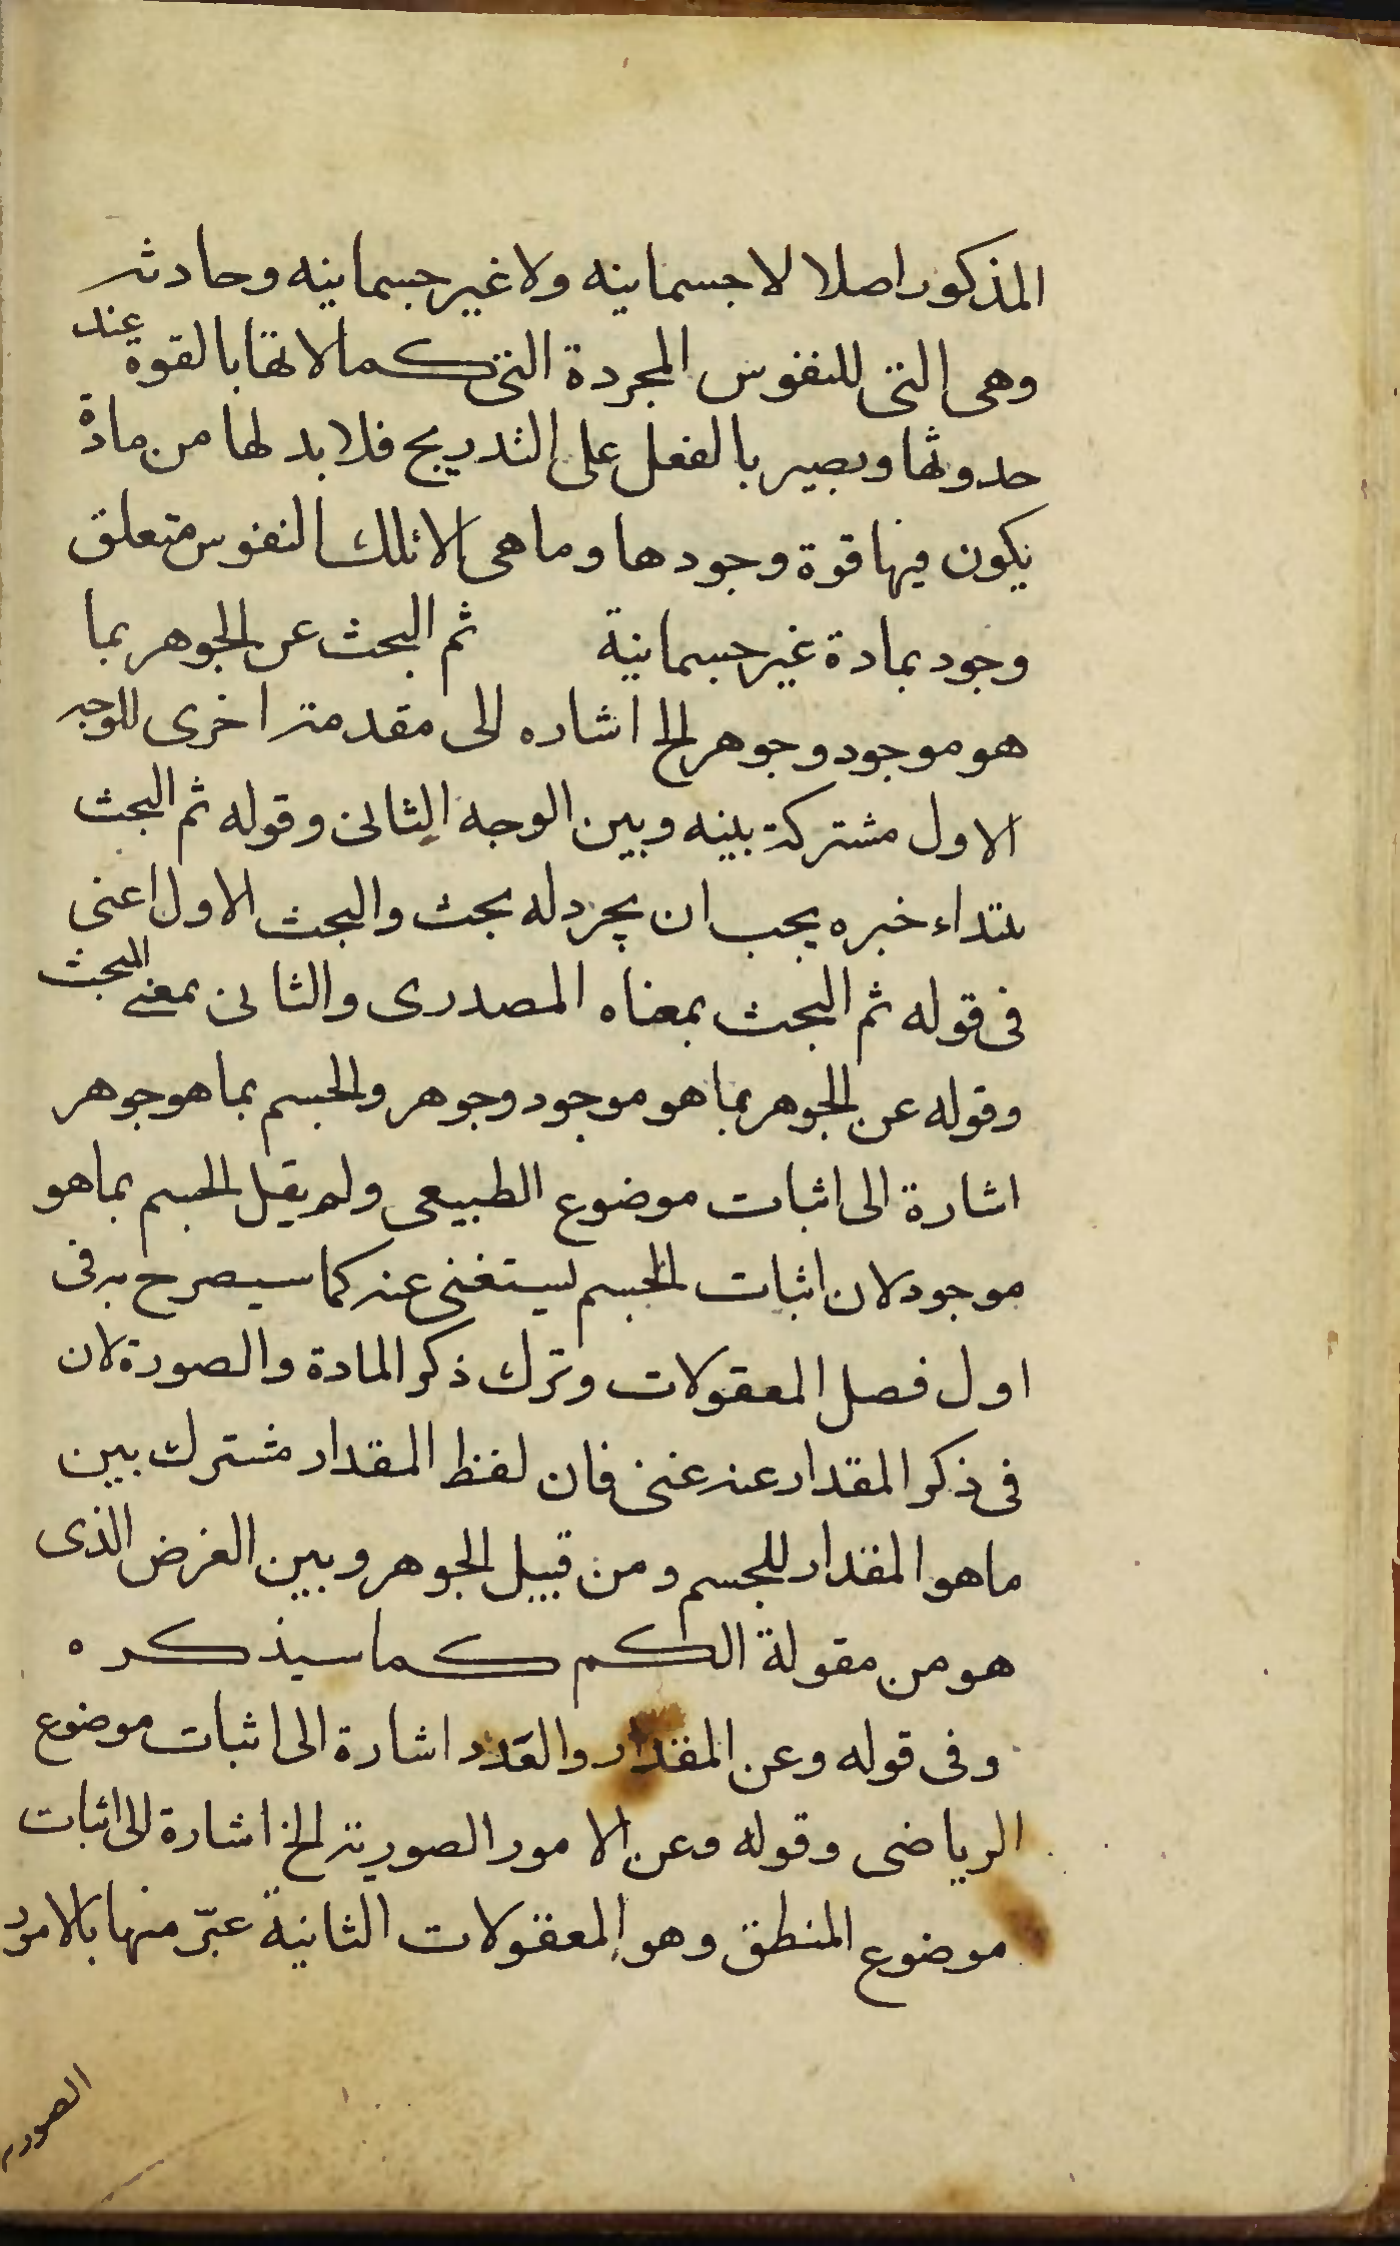 المذكور اصلا لا جسمانيه ولا غير جسمانيه وحادثه
وهى التى للنفوس المجردة التى كمالاتها بالقوة عند
حدوثها ويصير بالفعل على التدريج فلا بد لها من مادة
يكون فيها قوة وجودها وما هى الا تلك النفوس متعلق
وجود بمادة غير جسمانية ثم البحث عن الجوهر بما
هو موجود وجوهر الخ اشاره الى مقدمة اخرى للوجه
الاول مشتركة بينه وبين الوجه الثانى وقوله ثم البحث
بتداء خبره يجب ان يجرد له بحث والبحث الاول اعنى
فى قوله ثم البحث بمعناه المصدرى والثانى بمعنى المبحث
وقوله عن الجوهر بما هو موجود وجوهر والجسم بما هو جوهر
اشارة الى اثبات موضوع الطبيعى ولم يقل الجسم بما هو
موجود لان اثبات الجسم يستغنى عنه كما سيصرح به فى
اول فصل المعقولات وترك ذكر المادة والصورة لان
فى ذكر المقدار عنه غنى فان لفظ المقدار مشترك بين
ما هو المقدار للجسم ومن قبيل الجوهر وبين العرض الذى
هو من مقولة الكم كما سيذكره
وفى قوله وعن المقدار والعدد اشارة الى اثبات موضوع
الرياضى وقوله وعن الامور الصورية الخ اشارة الى اثبات
موضوع المنطق وهو المعقولات الثانية عبّر منها بالامور